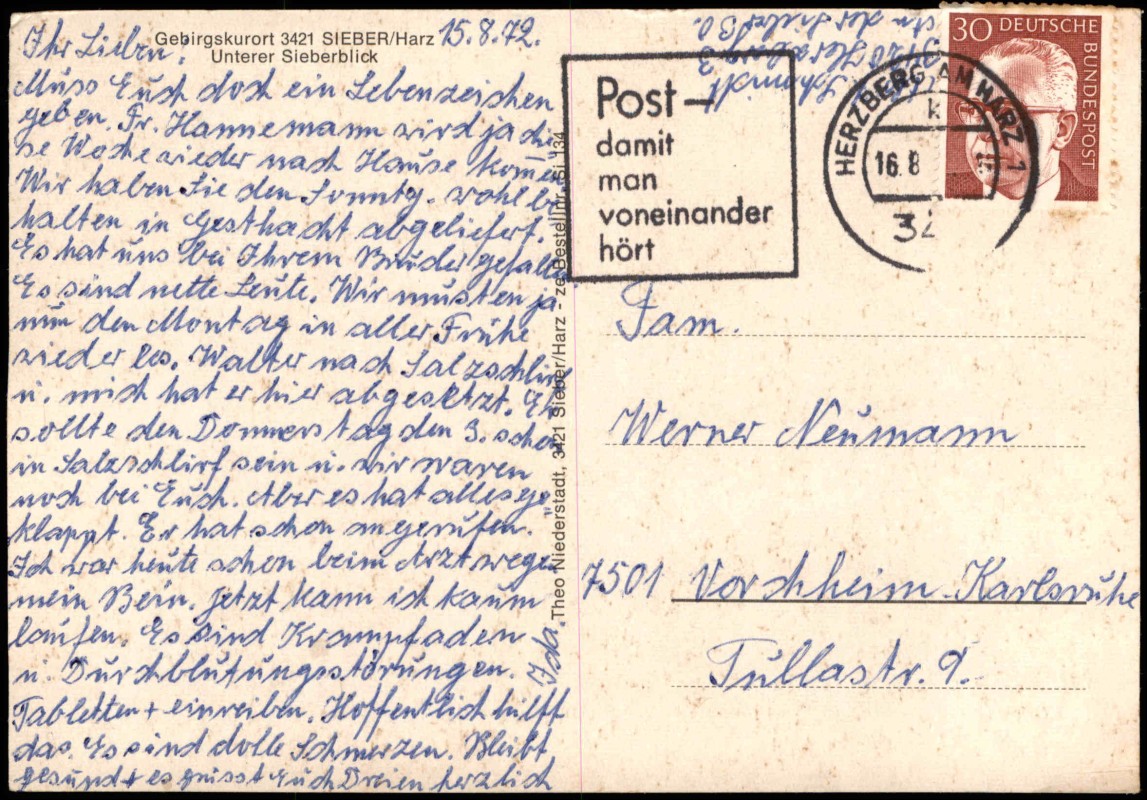 Gebirgskurort 3421 SIEBER/Harz
Unterer Sieberblick
15.8.72.
Ihr Lieben,
Muss Euch doch ein Lebenszeichen
geben. Fr. Hannemann wird ja die
se Woche wieder nach Hause kommen
Wir haben Sie den Sonntg. wohl be
halten in Gesthacht abgeliefert.
Es hat uns bei Ihrem Bruder gefallen
Es sind nette Leute. Wir mussten ja
nun den Montag in aller Frühe
wieder los. Walter nach Salzschlirf
u. mich hat er hier abgesetzt. Er
sollte den Donnerstag den 3. schon
in Salzschlirf sein u. wir waren
noch bei Euch. Aber es hat alles ge
klappt. Er hat schon angerufen.
Ich war heute schon beim Arzt wegen
mein Bein. Jetzt kann ich kaum
laufen. Es sind Krampfaden
u. Durchblutungsstörungen.
Tabletten + einreiben. Hoffentlich hilft
das. Es sind dolle Schmerzen. Bleibt
gesund + es grüsst Euch Dreien herzlich
Ida.
Theo Niederstadt, 3421 Sieber/Harz - ze Bestellnr. Si 134
Schmidt
An der Sieber 30.
Post-
damit
man
voneinander
hört
HERZBERG AM HARZ 1
k
16.8
34
30 DEUTSCHE
BUNDESPOST
Fam.
Werner Neumann
7501 Vorchheim-Karlsruhe
Tullastr. 9.